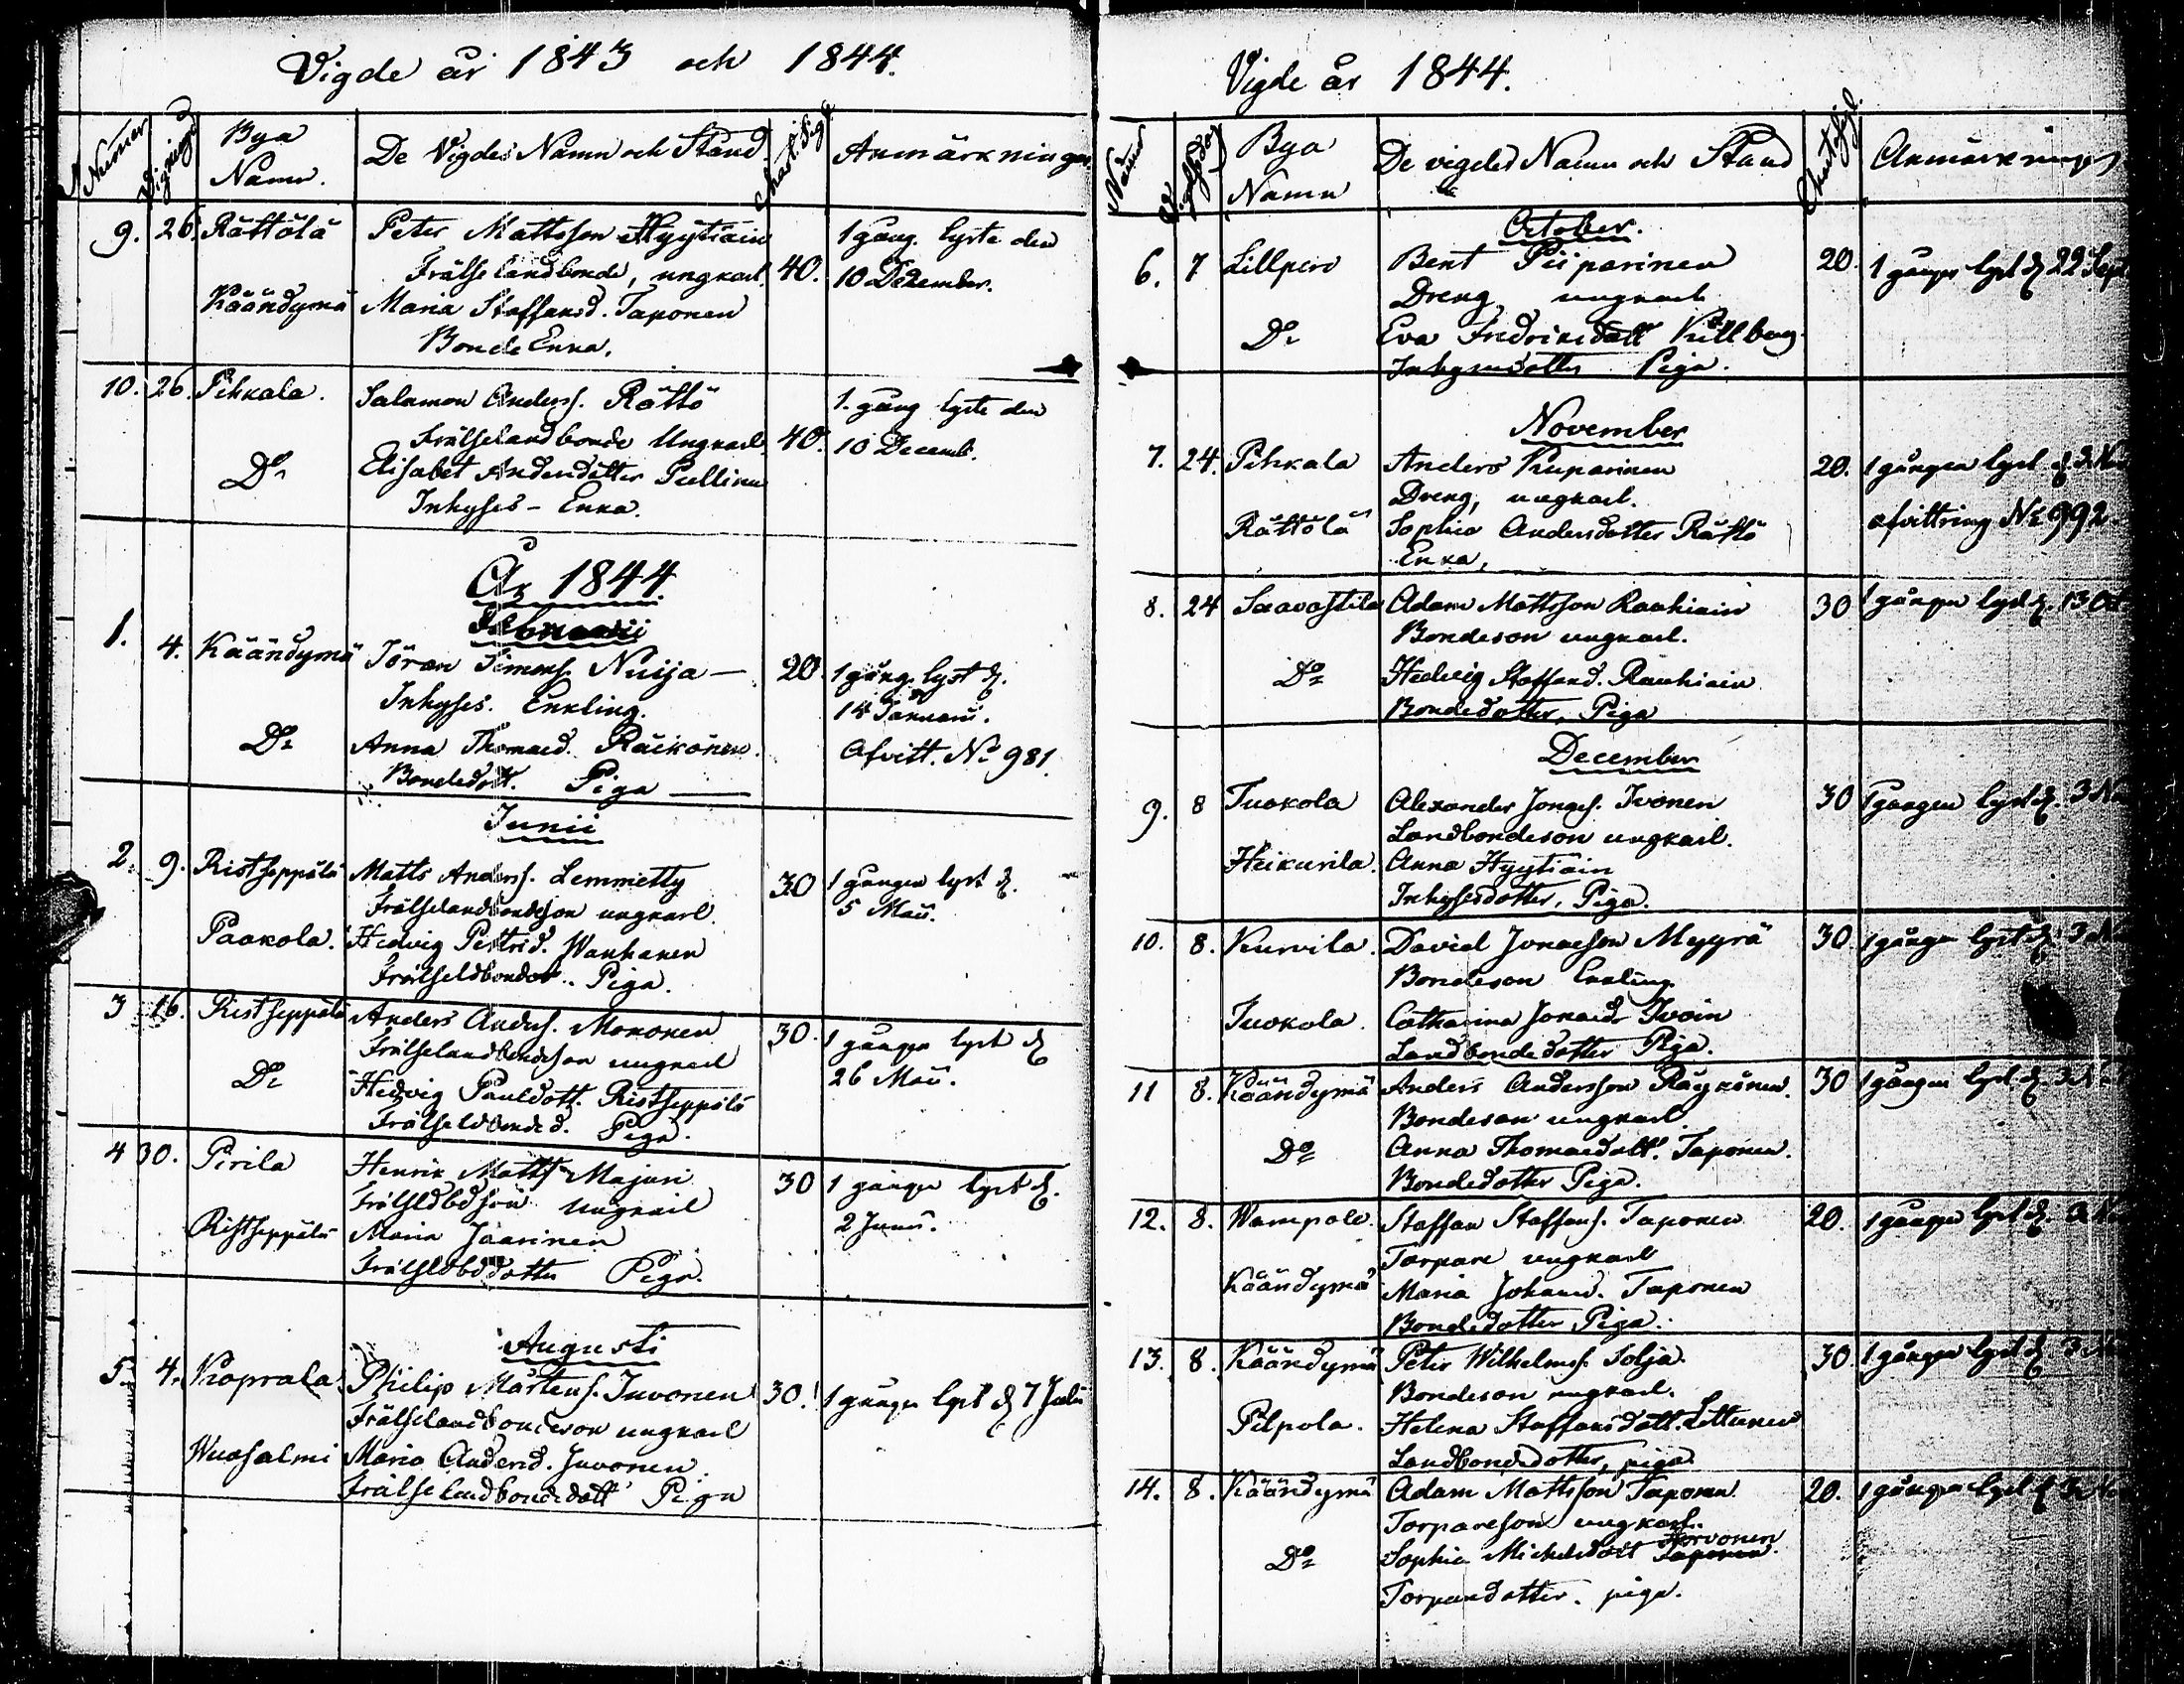 Vigde år 1843 och 1844.
Numer
Bya Namn.
De Vigdes Namn och Stånd.
Anmärkningar
9. 26. Rättölä Peter Mattsson Hyytiäin 1 gång. lyste den
Frälselandbonde, ungkarl. 40. 10 December.
Käändymä Maria Staffansd. Taponen
Bonde Enka.
10. 26. Pihkala. Salamon Anderss. Rättö 1. gång lyste den
Frälselandbonde Ungkarl 40. 10 Decemb.
Do Elisabet Andersdotter Pullinen
Inhyses - Enka.
År 1844
Februarii
1. 4. Käändymä Jöran Simonss. Nuija — 20. 1 gång. lyst d.
Inhyses. Enkling. 14 Januari.
Do Anna Thomasd. Räikönen. Afvitt. No 981.
Bondedott. Piga —
Junii
2. 9. Ristseppälä Matts Anderss. Lemmetty 30 1 gången lyst d.
Frälselandbondeson ungkarl. 5 Maii.
Paakola. Hedvig Pettrid. Wanhanen
Piga.
3 16. Ristseppälä Anders Anderss. Mononen 30. 1 gången lyst d
Frälselandbondeson ungkarl 26 Maii.
Do Hedvig Pauldott. Ristseppälä
Frälseldbonded. Piga.
4 30. Pirila Henrik Mattss Majuri 30 1 gången lyst d.
Frälseldbdson Ungkarl 2 Junii.
Ristseppälä Maria Jäärinen
Frälseldbddotter Piga.
Augusti
5. 4. Koprala Philip Mårtenss. Juvonen 30. 1 gången lyst d 7 Julii
Frälselandbondeson ungkarl
Wuosalmi Maria Andersd. Juvonen.
Frälselandbondedott Piga
Vigde år 1844.
Bya Namn
De vigdes Namn och Stånd
Anmärkningar
October.
6. 7 Lillpero Bent Piiparinen 20. 1 gången lyst d 22 Sept
Dreng ungkarl
Do Eva Fredriksdott Kullberg
Inhysesdotter Piga.
November
7. 24. Pihkala Anders Kuparinen 20. 1 gången lyst d. 3 Nov
Dreng, ungkarl. afvittring No 992.
Rättölä Sophia Andersdotter Rättö
Enka,
8. 24 Saavastila Adam Mattsson Rauhiain 30 1 gången lyst d. 13 Oct
Bondeson ungkarl.
Do Hedvig Staffansd. Rauhiain
Bondedotter, Piga
December
9. 8 Tuokola Alexander Jongss. Ivonen 30 1 gången lyst d. 3 No
Landbondeson ungkarl.
Heikurila. Anna Hyytiäin
Inhysesdotter, Piga.
10. 8. Kurvila. David Jonaeson Myyrä 30. 1 gången lyst d. 3 No
Bondeson Enkling
Tuokola. Catharina Jonaed. Ivoin
Landbondedotter Piga.
11 8. Käändymä Anders Andersson Räykönen. 30 1 gången lyst d. 3 No
Bondeson ungkarl.
Do Anna Thomaedott. Taponen.
Bondedotter Piga.
12. 8. Wampola. Staffan Staffanss. Taponen 20. 1 gången lyst d.
Torpare ungkarl
Käändymä Maria Johansd. Taponen
Bondedotter Piga.
13. 8. Käändymä Peter Wilhelmss. Solja. 30. 1 gången lyst d 3 No
Bondeson ungkarl.
Pilpola. Helena Staffansdott. Lettunen
Landbondedotter, piga
14. 8. Käändymä Adam Mattsson Taponen 20. 1 gången lyst d 3 Nov
Torpareson ungkarl.
Do Sophia Michelsdott Torvonen Taponen.
Torparedotter. piga.